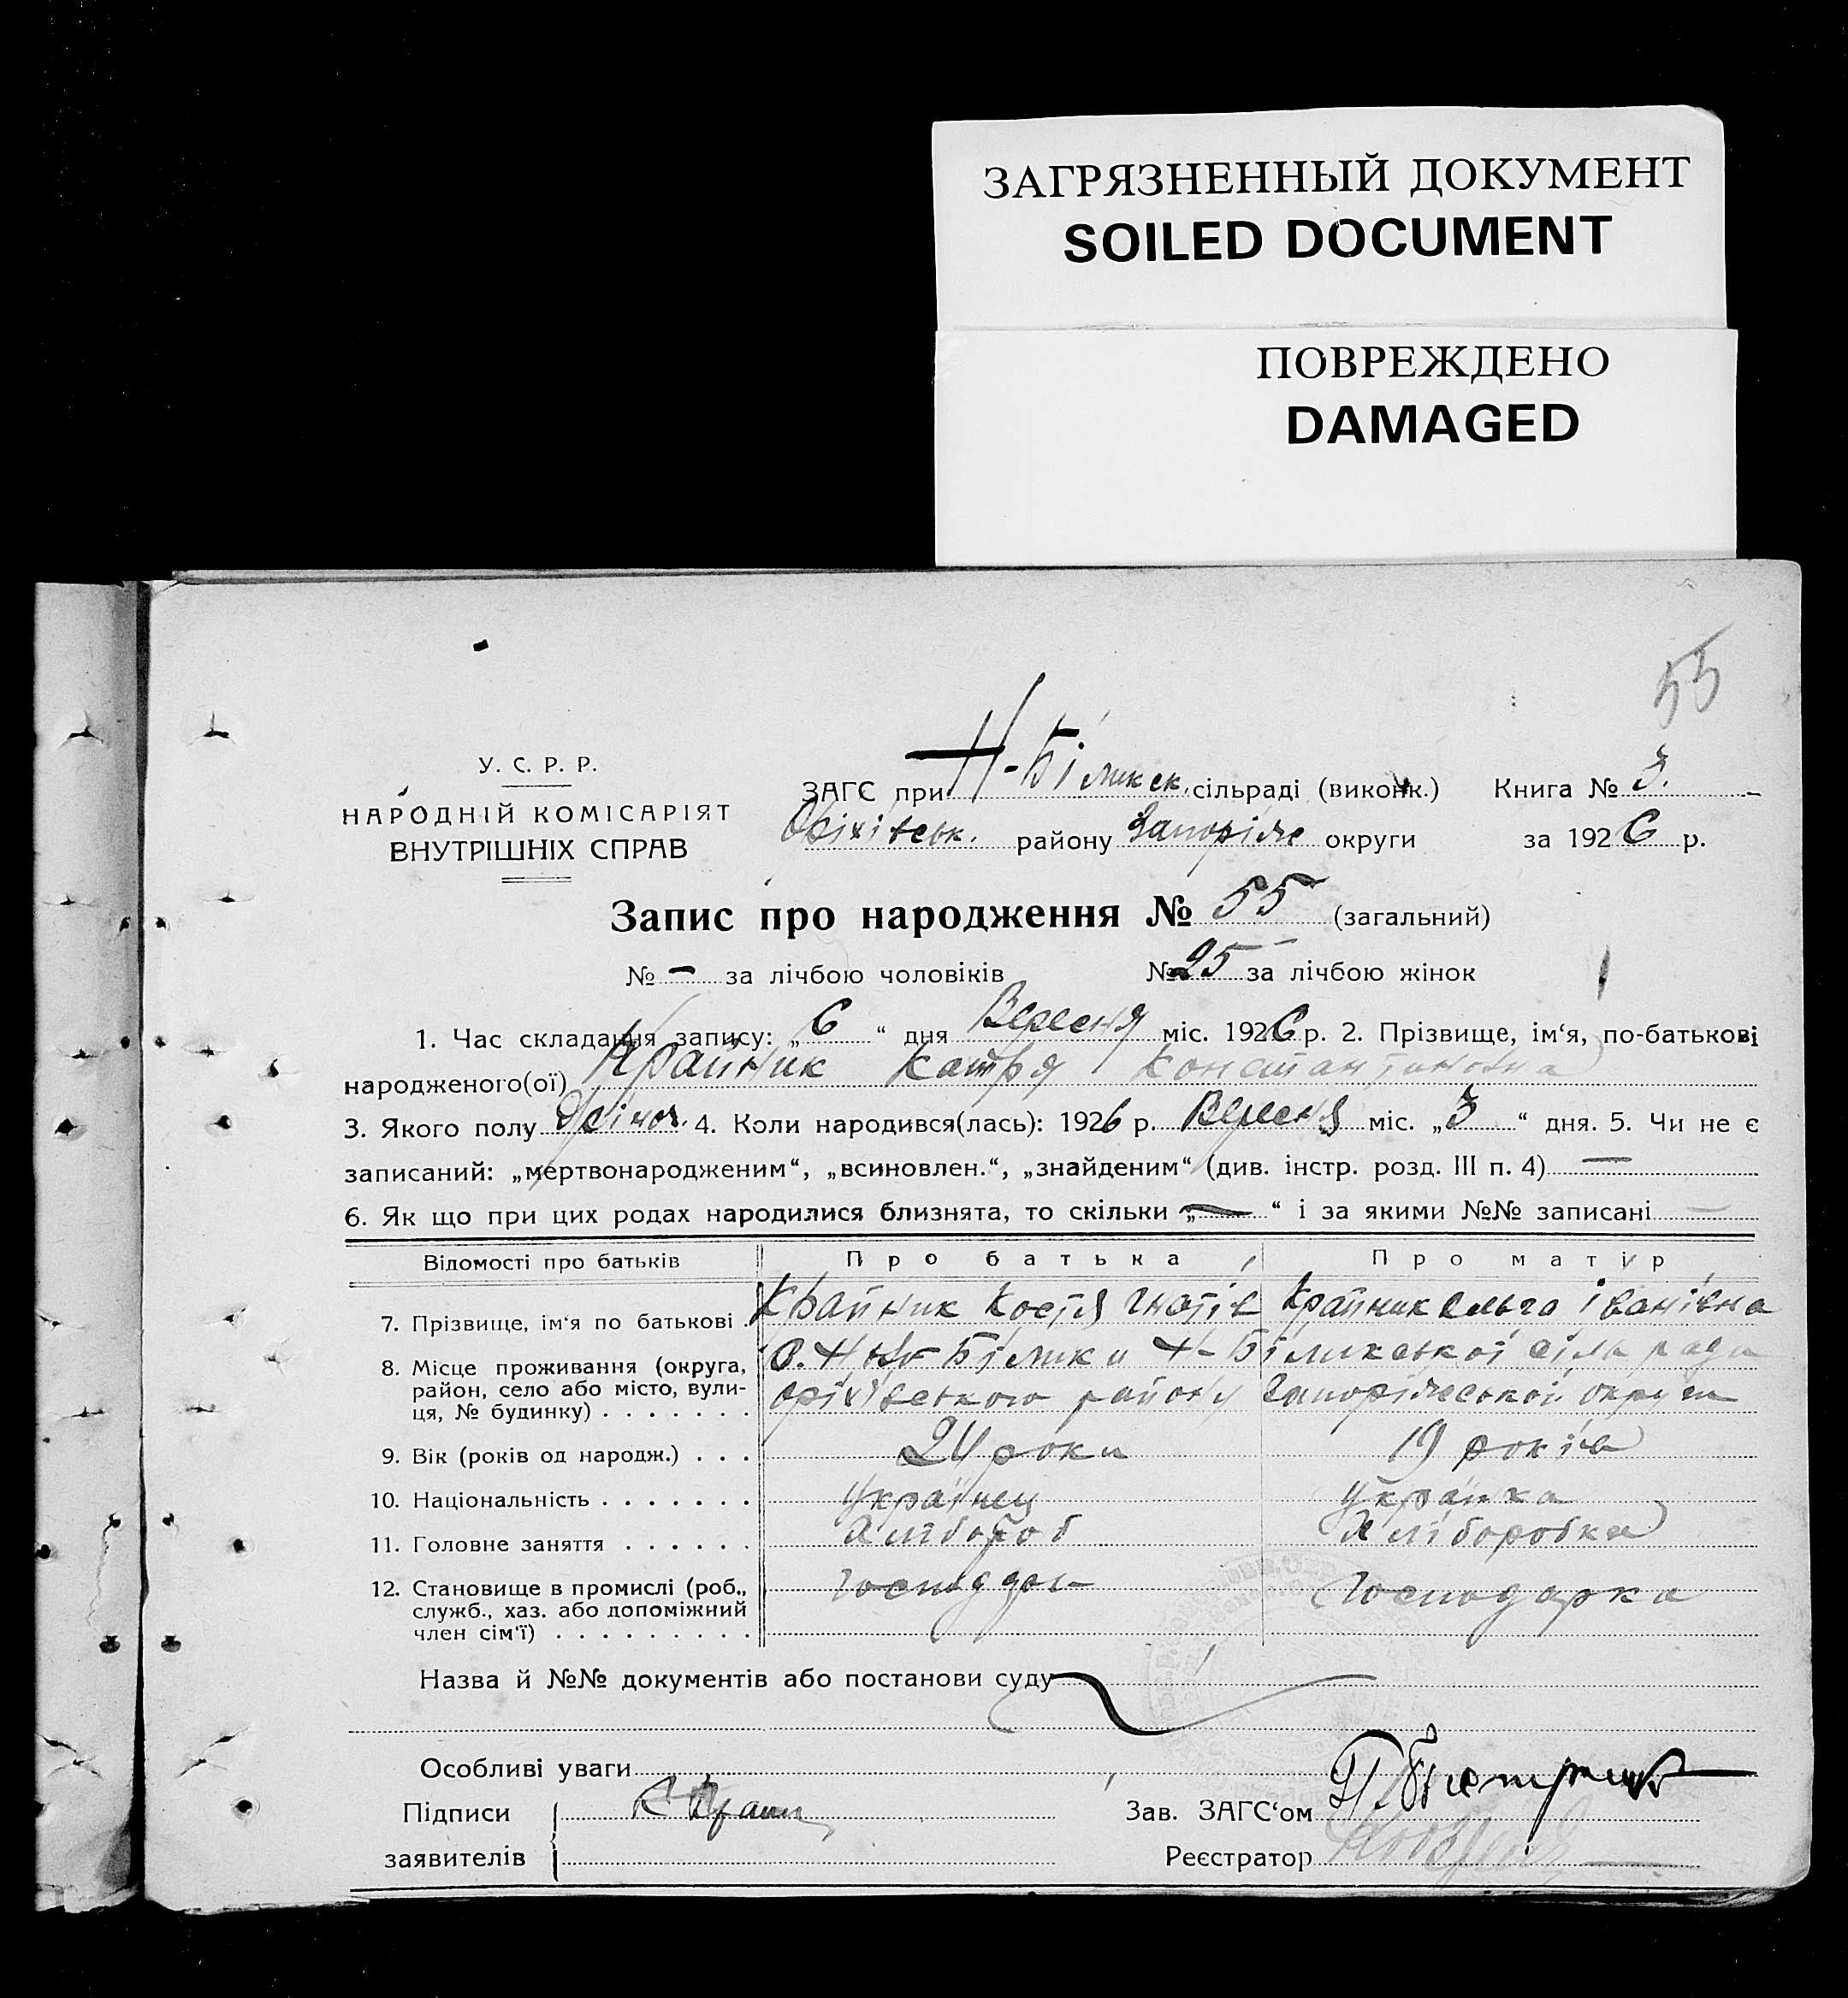 ЗАГРЯЗНЕННЫЙ ДОКУМЕНТ
SOILED DOCUMENT
ПОВРЕЖДЕНО
DAMAGED
55
У. С. Р. Р.
НАРОДНІЙ КОМІСАРІЯТ
ВНУТРІШНІХ СПРАВ
ЗАГС при Н-Біликск. сільраді (виконк.) Книга № 3.
Оріхівськ. району Запоріже округи за 1926 р.
Запис про народження № 55 (загальний)
№ – за лічбою чоловіків № 25 за лічбою жінок
1. Час складання запису: „6“ дня Вересня міс. 1926 р. 2. Прізвище, ім‘я, по-батькові
народженого(ої) Крайник Катря Константиновна
3. Якого полу жіноч. 4. Коли народився(лась): 1926 р. Вересня міс. „3“ дня. 5. Чи не є
записаний: „мертвонародженим“, „всиновлен.“, „знайденим“ (див. інстр. розд. III п. 4) —
6. Як що при цих родах народилися близнята, то скільки „—“ і за якими №№ записані —
Відомості про батьків Про батька Про матір
7. Прізвище, ім‘я по батькові . Крайник Костя Гнатів Крайник Ольга Іванівна
8. Місце проживання (округа, район, село або місто, вулиця, № будинку) . . . . . . . Білики Н-Біликської сільради
Оріхівського району Запоріжської округи
9. Вік (років од народж.) . . . 24 роки 19 років
10. Національність . . . . . . . Українец Українка
11. Головне заняття . . . . . . Хлібороб Хліборобка
12. Становище в промислі (роб., служб., хаз. або допоміжний член сім‘ї) . . . . . . . . . Господар Господарка
Назва й №№ документів або постанови суду
Особливі уваги
Підписи
заявителів
Зав. ЗАГС‘ом
Реєстратор